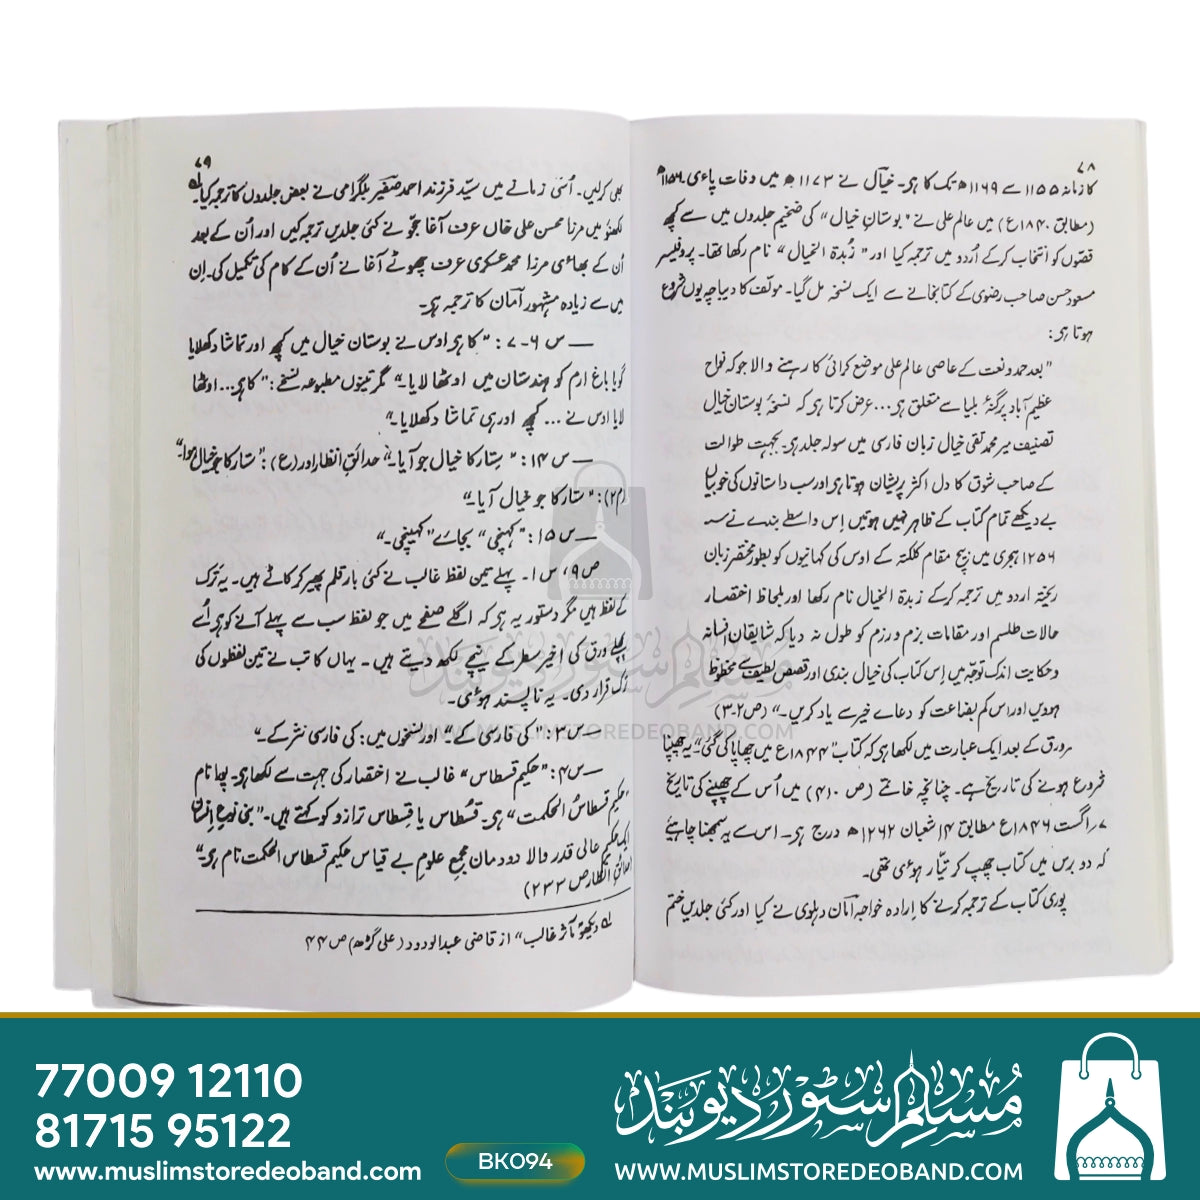 ۷۸
کا زمانہ ۱۱۵۵ سے ۱۱۶۹ھ تک کا ہی۔ خیال نے ۱۱۷۳ھ میں وفات پاءی۔ ۱۱۵۶ھ
(مطابق ۱۸۴۰ع) میں عالم علی نے "بوستانِ خیال" کی ضخیم جلدوں میں سے کچھ
قصّوں کو انتخاب کرکے اُردو میں ترجمہ کیا اور "زُبدۃ الخیال" نام رکھا تھا۔ پروفیسر
مسعود حسن صاحب رضوی کے کتابخانے سے ایک نسخہ مل گیا۔ مولّف کا دیباچہ یوں شروع
ہوتا ہی:
"بعد حمد و نعت کے عاصی عالم علی موضع کراٸی کا رہنے والا جو کہ نواح
عظیم آباد پرگنۂ بلیا سے متعلق ہی... عرض کرتا ہی کہ نسخۂ بوستانِ خیال
تصنیف میر محمد تقی خیال زبان فارسی میں سولہ جلد ہی۔ بجہت طوالت
کے صاحب شوق کا دل اکثر پریشان ہوتا ہی اور سب داستانوں کی خوبیاں
بے دیکھے تمام کتاب کے ظاہر نہیں ہوتیں اِس واسطے بندے نے سنہ
۱۲۵۶ ہجری میں بیچ مقام کلکتہ کے اوس کی کہانیوں کو بطور مختصر زبان
ریختہ اردو میں ترجمہ کرکے زبدۃ الخیال نام رکھا اور بلحاظ اختصار
حالات طلسم اور مقامات بزم و رزم کو طول نہ دیا کہ شایقان افسانہ
و حکایت اندک توجّہ میں اِس کتاب کی خیال بندی اور قصص لطیف سے محظوظ
ہوویں اور اس کم بضاعت کو دعاے خیر سے یاد کریں۔" (ص ۲-۳)
سرورق کے بعد ایک عبارت میں لکھا ہی کہ کتاب "۱۸۴۴ع میں چھاپا کی گٸی" یہ چھپنا
شروع ہونے کی تاریخ ہے۔ چنانچہ خاتمے (ص ۴۱۰) میں اُس کے چھپنے کی تاریخ
۷ اگست ۱۸۴۶ع مطابق ۱۴ شعبان ۱۲۶۲ھ درج ہی۔ اس سے یہ سمجھنا چاہیے
کہ دو برس میں کتاب چھپ کر تیّار ہوٸی تھی۔
پوری کتاب کے ترجمہ کرنے کا ارادہ خواجہ امان دہلوی نے کیا اور کٸی جلدیں ختم
۷۹
بھی کرلیں۔ اُسی زمانے میں سیّد فرزند احمد صفیر بلگرامی نے بعض جلدوں کا ترجمہ کیا۔
لکھنؤ میں مرزا محسن علی خاں عرف آغا حجّو نے کٸی جلدیں ترجمہ کیں اور اُن کے بعد
اُن کے بھاٸی مرزا محمد عسکری عرف چھوٹے آغا نے اُن کے کام کی تکمیل کی۔ اِن
میں سے زیادہ مشہور آمان کا ترجمہ ہی۔
— س ۶-۷: "کا ہی اوس نے بوستان خیال میں کچھ اور تماشا دکھلایا
گویا باغ ارم کو ہندستان میں اوٹھا لایا۔" مگر تینوں مطبوعہ نسخے: "کا ہی... اوٹھا
لایا اوس نے... کچھ اور ہی تماشا دکھلایا۔"
— س ۱۴: "ستار کا خیال جو آیا۔" حدائق انظار اور (ع): "ستار کا جو خیال ہوا۔"
(م۲): "ستار کا جو خیال آیا۔"
— س ۱۵: "کھنچی" بجاے "کھینچی۔"
ص ۹، س ۱۔ پہلے تین لفظ غالب نے کٸی بار قلم پھیر کر کاٹے ہیں۔ یہ ترک
کے لفظ ہیں مگر دستور یہ ہی کہ اگلے صفحے میں جو لفظ سب سے پہلے آنے کو ہی اُسے
پچھلے ورق کی اخیر سطر کے نیچے لکھ دیتے ہیں۔ یہاں کاتب نے تین لفظوں کی
ترک قرار دی۔ یہ ناپسند ہوٸی۔
— س ۳: "کی فارسی کے۔" اور نسخوں میں: کی فارسی نثر کے۔"
— س ۴: "حکیم قسطاس" غالب نے اختصار کی جہت سے لکھا ہی۔ پورا نام
"حکیم قسطاس الحکمت" ہی۔ قُسطاس یا قِسطاس ترازو کو کہتے ہیں۔ "بنی نوع انسان
ایک حکیم عالی قدر والا دودمان مجمع علوم بے قیاس حکیم قسطاس الحکمت نام ہی۔"
(حدائق انظار ص ۲۳۳)
لہ دیکھو "مآثر غالب" از قاضی عبدالودود (علی گڑھ) ص ۴۴
مسلم سٹور دیوبند
WWW.MUSLIMSTOREDEOBAND.COM
77009 12110
81715 95122
www.muslimstoredeoband.com
BK094
مسلم سٹور دیوبند
WWW.MUSLIMSTOREDEOBAND.COM